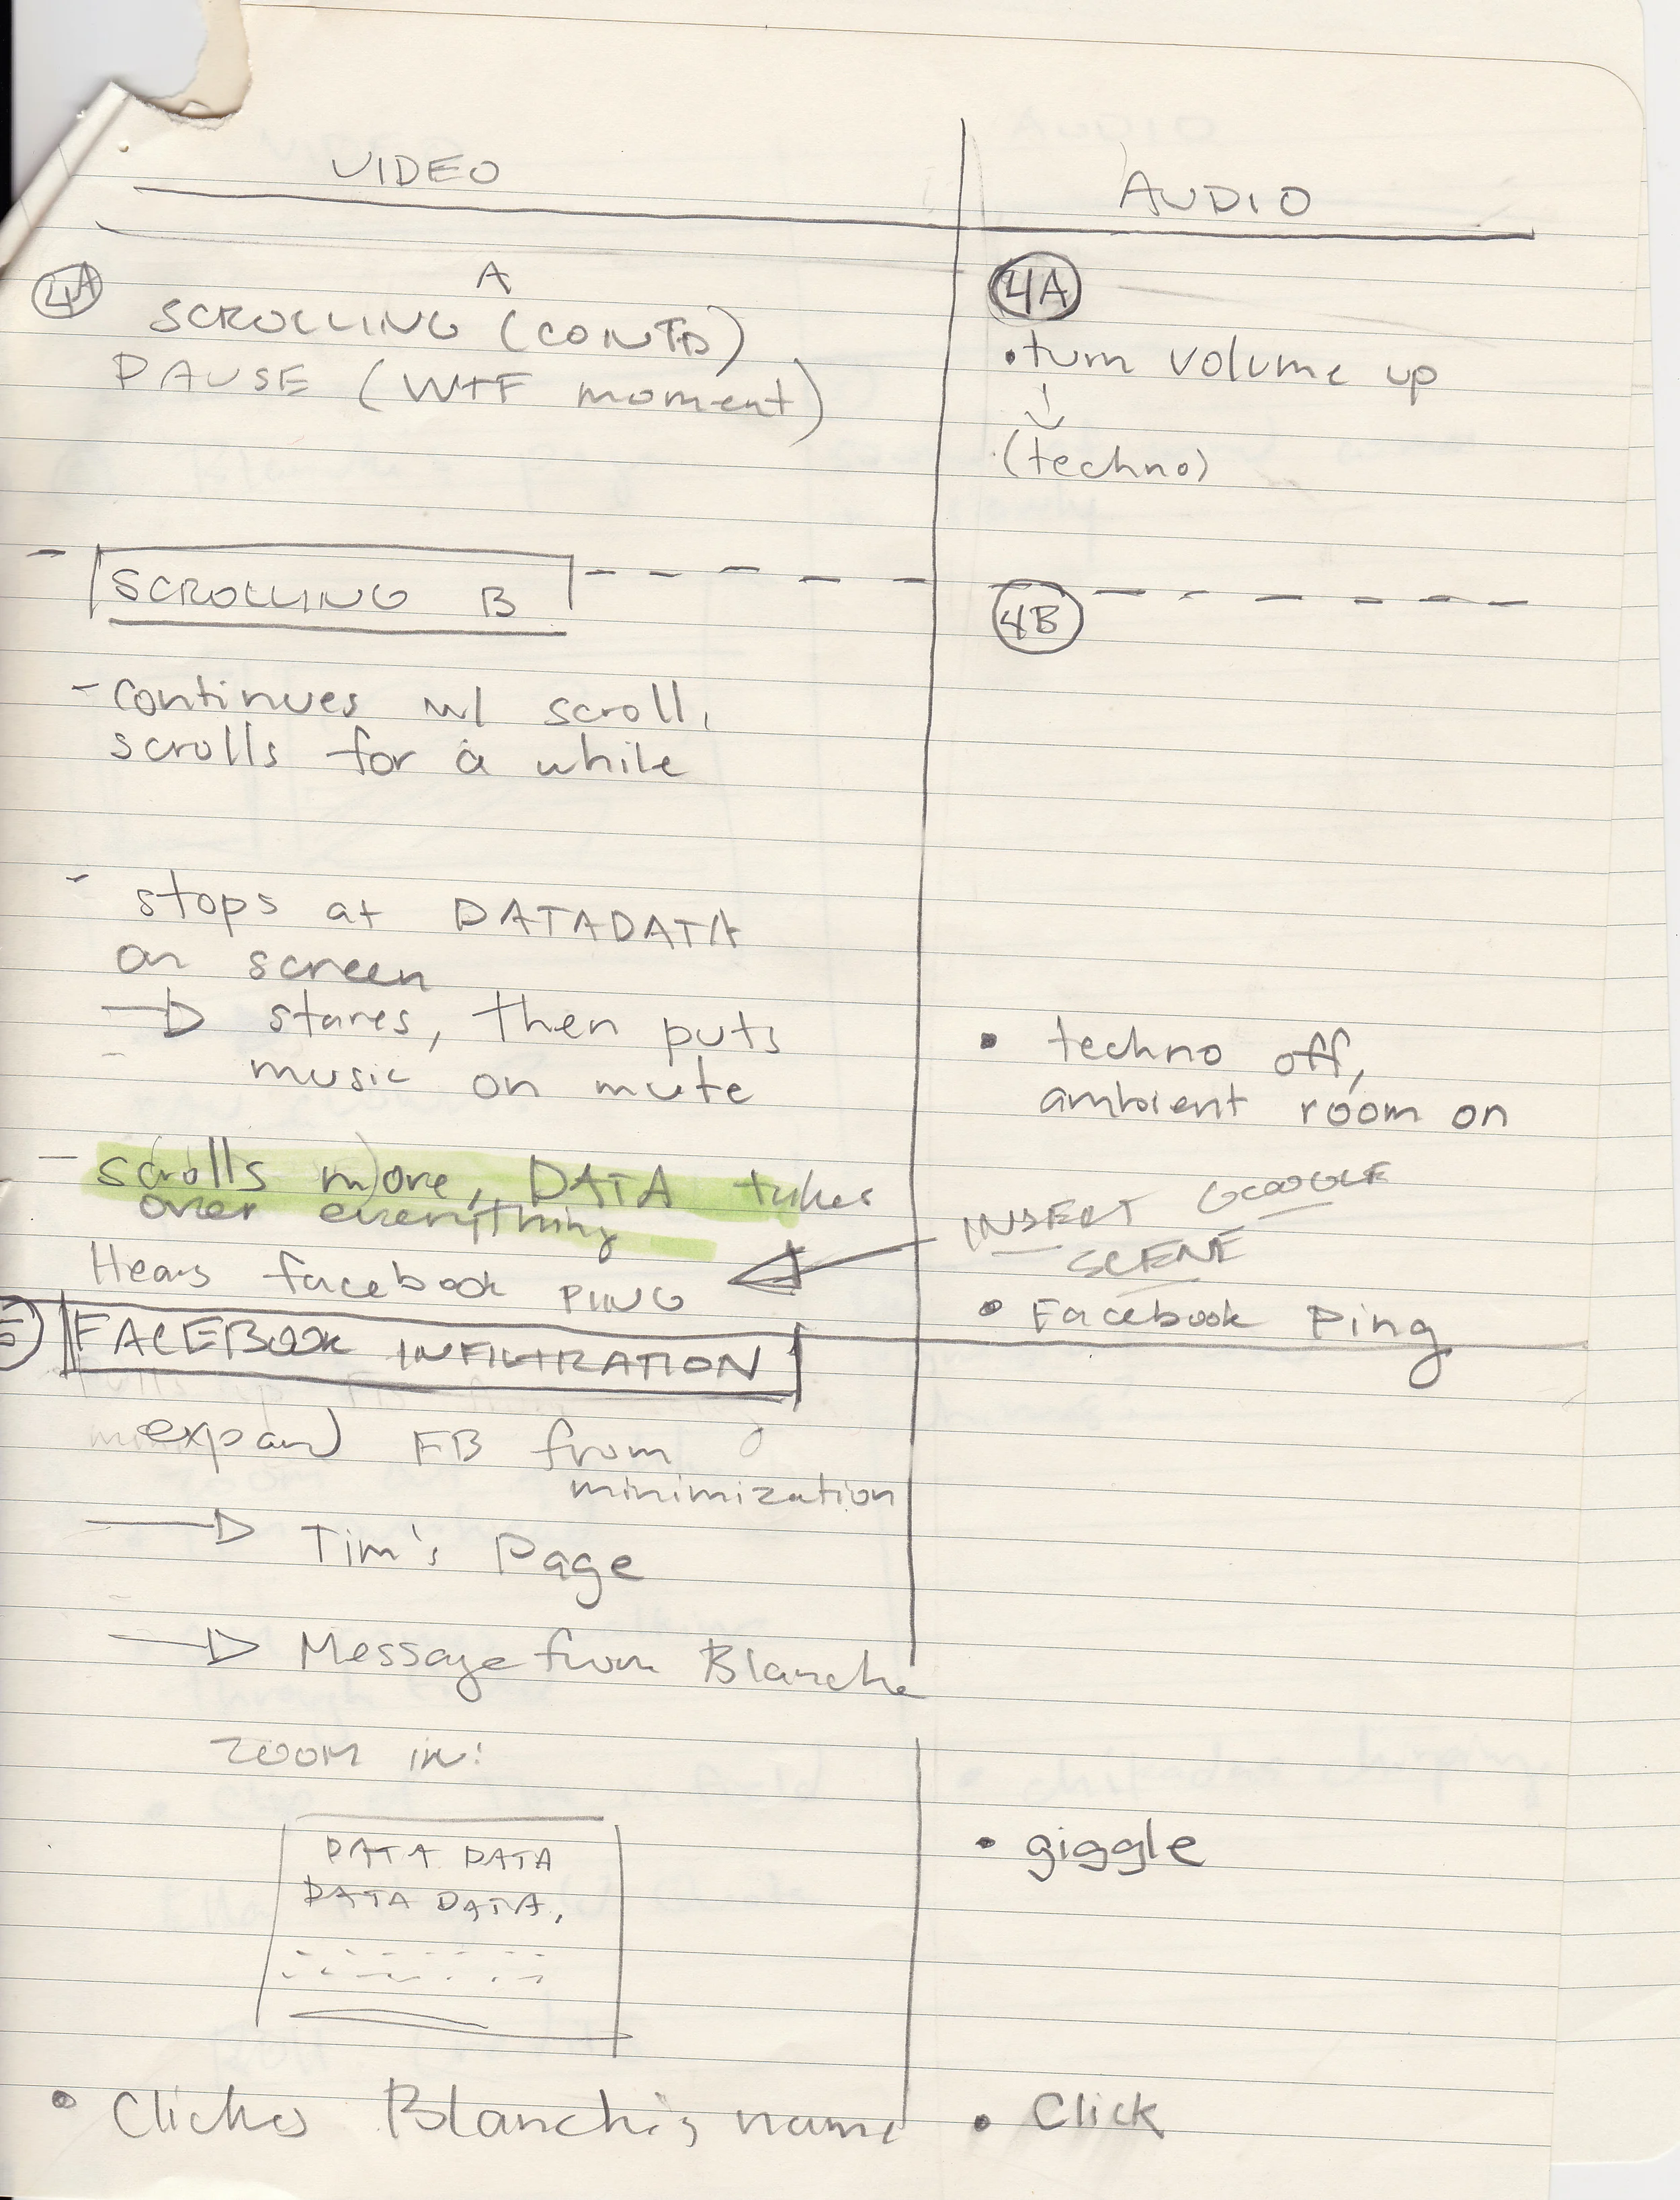 VIDEO
AUDIO
4A
A
SCROLLING (CONTD)
PAUSE (WTF moment)
4A
• turn volume up
(techno)
SCROLLING B
4B
- continues w/ scroll,
scrolls for a while
- stops at DATADATA
on screen
→ stares, then puts
music on mute
• techno off,
ambient room on
- scrolls more, DATA takes
over everything
INSERT GOOGLE
SCENE
Hears facebook PING
• Facebook Ping
5 FACEBOOK INFILTRATION
expand FB from
minimization
→ Tim's Page
→ Message from Blanche
ZOOM IN!
DATA DATA
DATA DATA,
• giggle
• Clicks Blanche's name
• Click